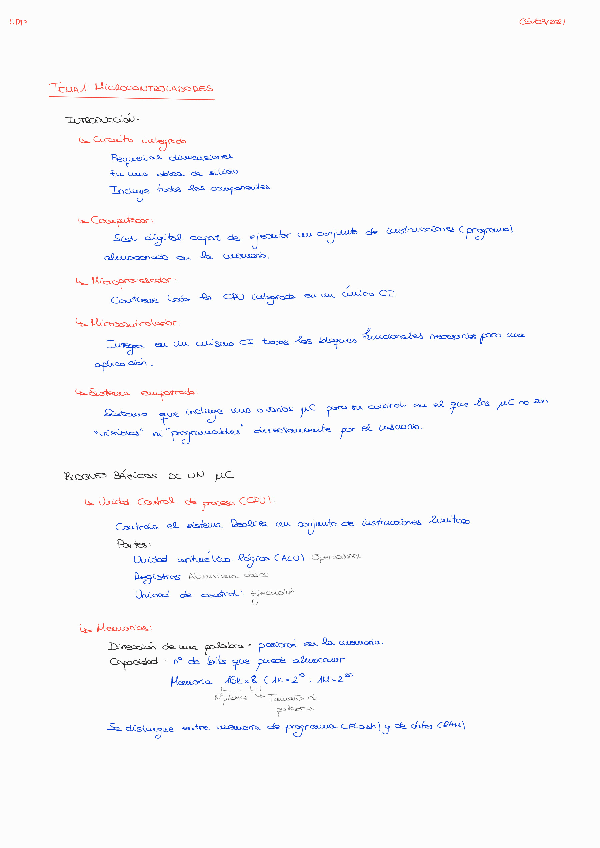 TEMA 1 MICROCONTROLADORES
INTRODUCCIÓN:
↳ Circuito integrado
Pequeñas dimensiones
En una oblea de silicio
Incluye todos los componentes
↳ Computador:
Sist. digital capaz de ejecutar un conjunto de instrucciones (programa)
almacenado en la memoria.
↳ Microprocesador:
Contiene toda la CPU integrada en un único CI
↳ Microcontrolador
Integra en un mismo CI todos los bloques funcionales necesarios para una
aplicación.
↳ Sistema empotrado
Sistema que incluye uno o varios µC para su control en el que los µC no son
"visibles" ni "programables" directamente por el usuario.
BLOQUES BÁSICOS DE UN µC
↳ Unidad Central de proceso (CPU):
Controla el sistema. Realiza un conjunto de instrucciones limitado
Partes:
Unidad aritmético lógica (ALU) Operaciones
Registros
Unidad de control: Ejecución
↳ Memorias:
Dirección de una palabra: posición en la memoria.
Capacidad: nº de bits que puede almacenar
Memoria 16K x 8 (1K = 2¹⁰, 1M = 2²⁰
Tamaño de
palabra
Se distingue entre memoria de programa (Flash) y de datos (RAM)